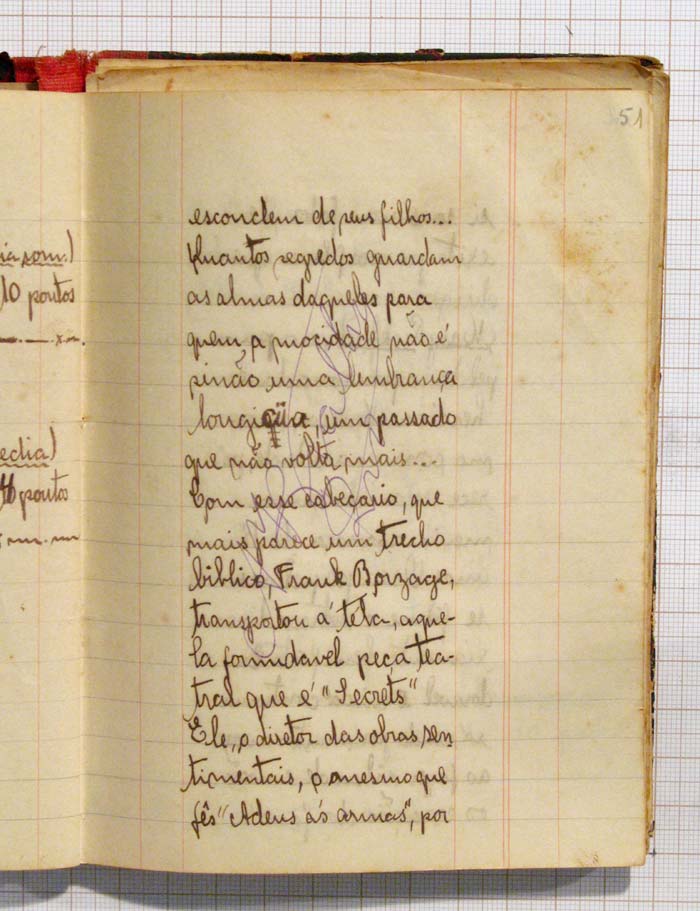 51
escondem de seus filhos...
Quantos segredos guardam
as almas daqueles para
quem a mocidade não é
sinão uma lembrança
longiqüa, um passado
que não volta mais...
Com esse cabeçario, que
mais parece um trecho
biblico, Frank Borzage,
transportou á tela, aque-
la formidavel peça tea-
tral que é "Secrets"
Ele, o diretor das obras sen-
timentais, o mesmo que
fês "Adeus ás armas", por
10 pontos
pontos